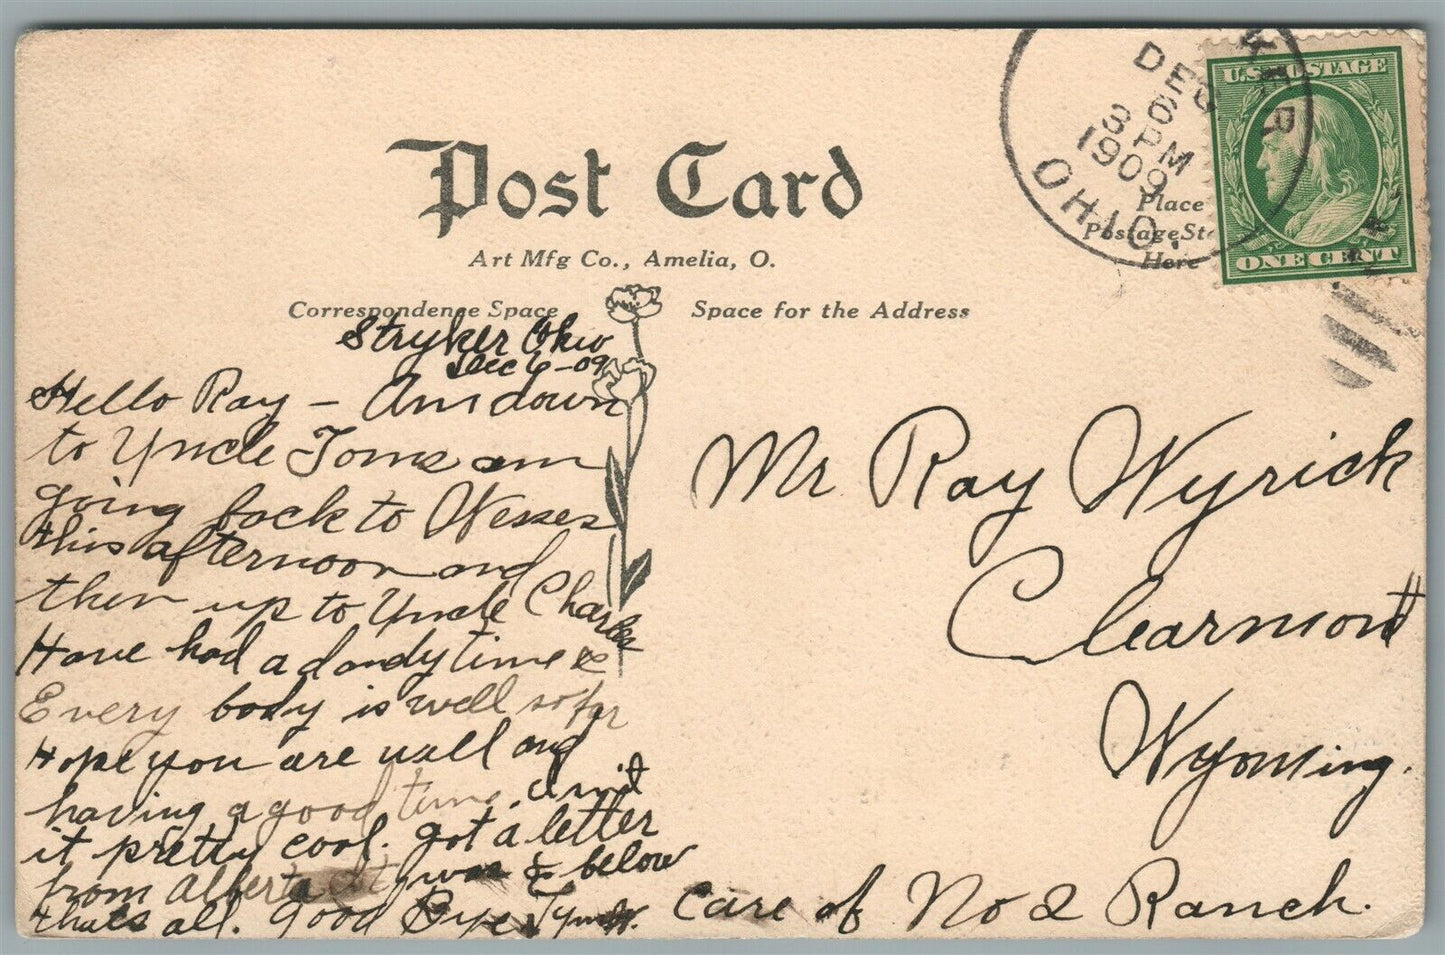 Post Card
Art Mfg Co., Amelia, O.
Correspondence Space
Space for the Address
DEC
6
3 PM
1909
OHIO.
Place
Postage
Here
U.S. POSTAGE
ONE CENT
Stryker Ohio
Dec 6-09
Hello Ray - Am down
to Uncle Toms am
going back to Wesses
this afternoon and
then up to Uncle Charles
Have had a dandy time &
Every body is well so far
Hope you are well and
having a good time.
it pretty cool. got a letter
from Alberta it was & below
thats all. Good Bye
Mr Ray Wyrick
Clearmont
Wyoming.
care of No 2 Ranch.